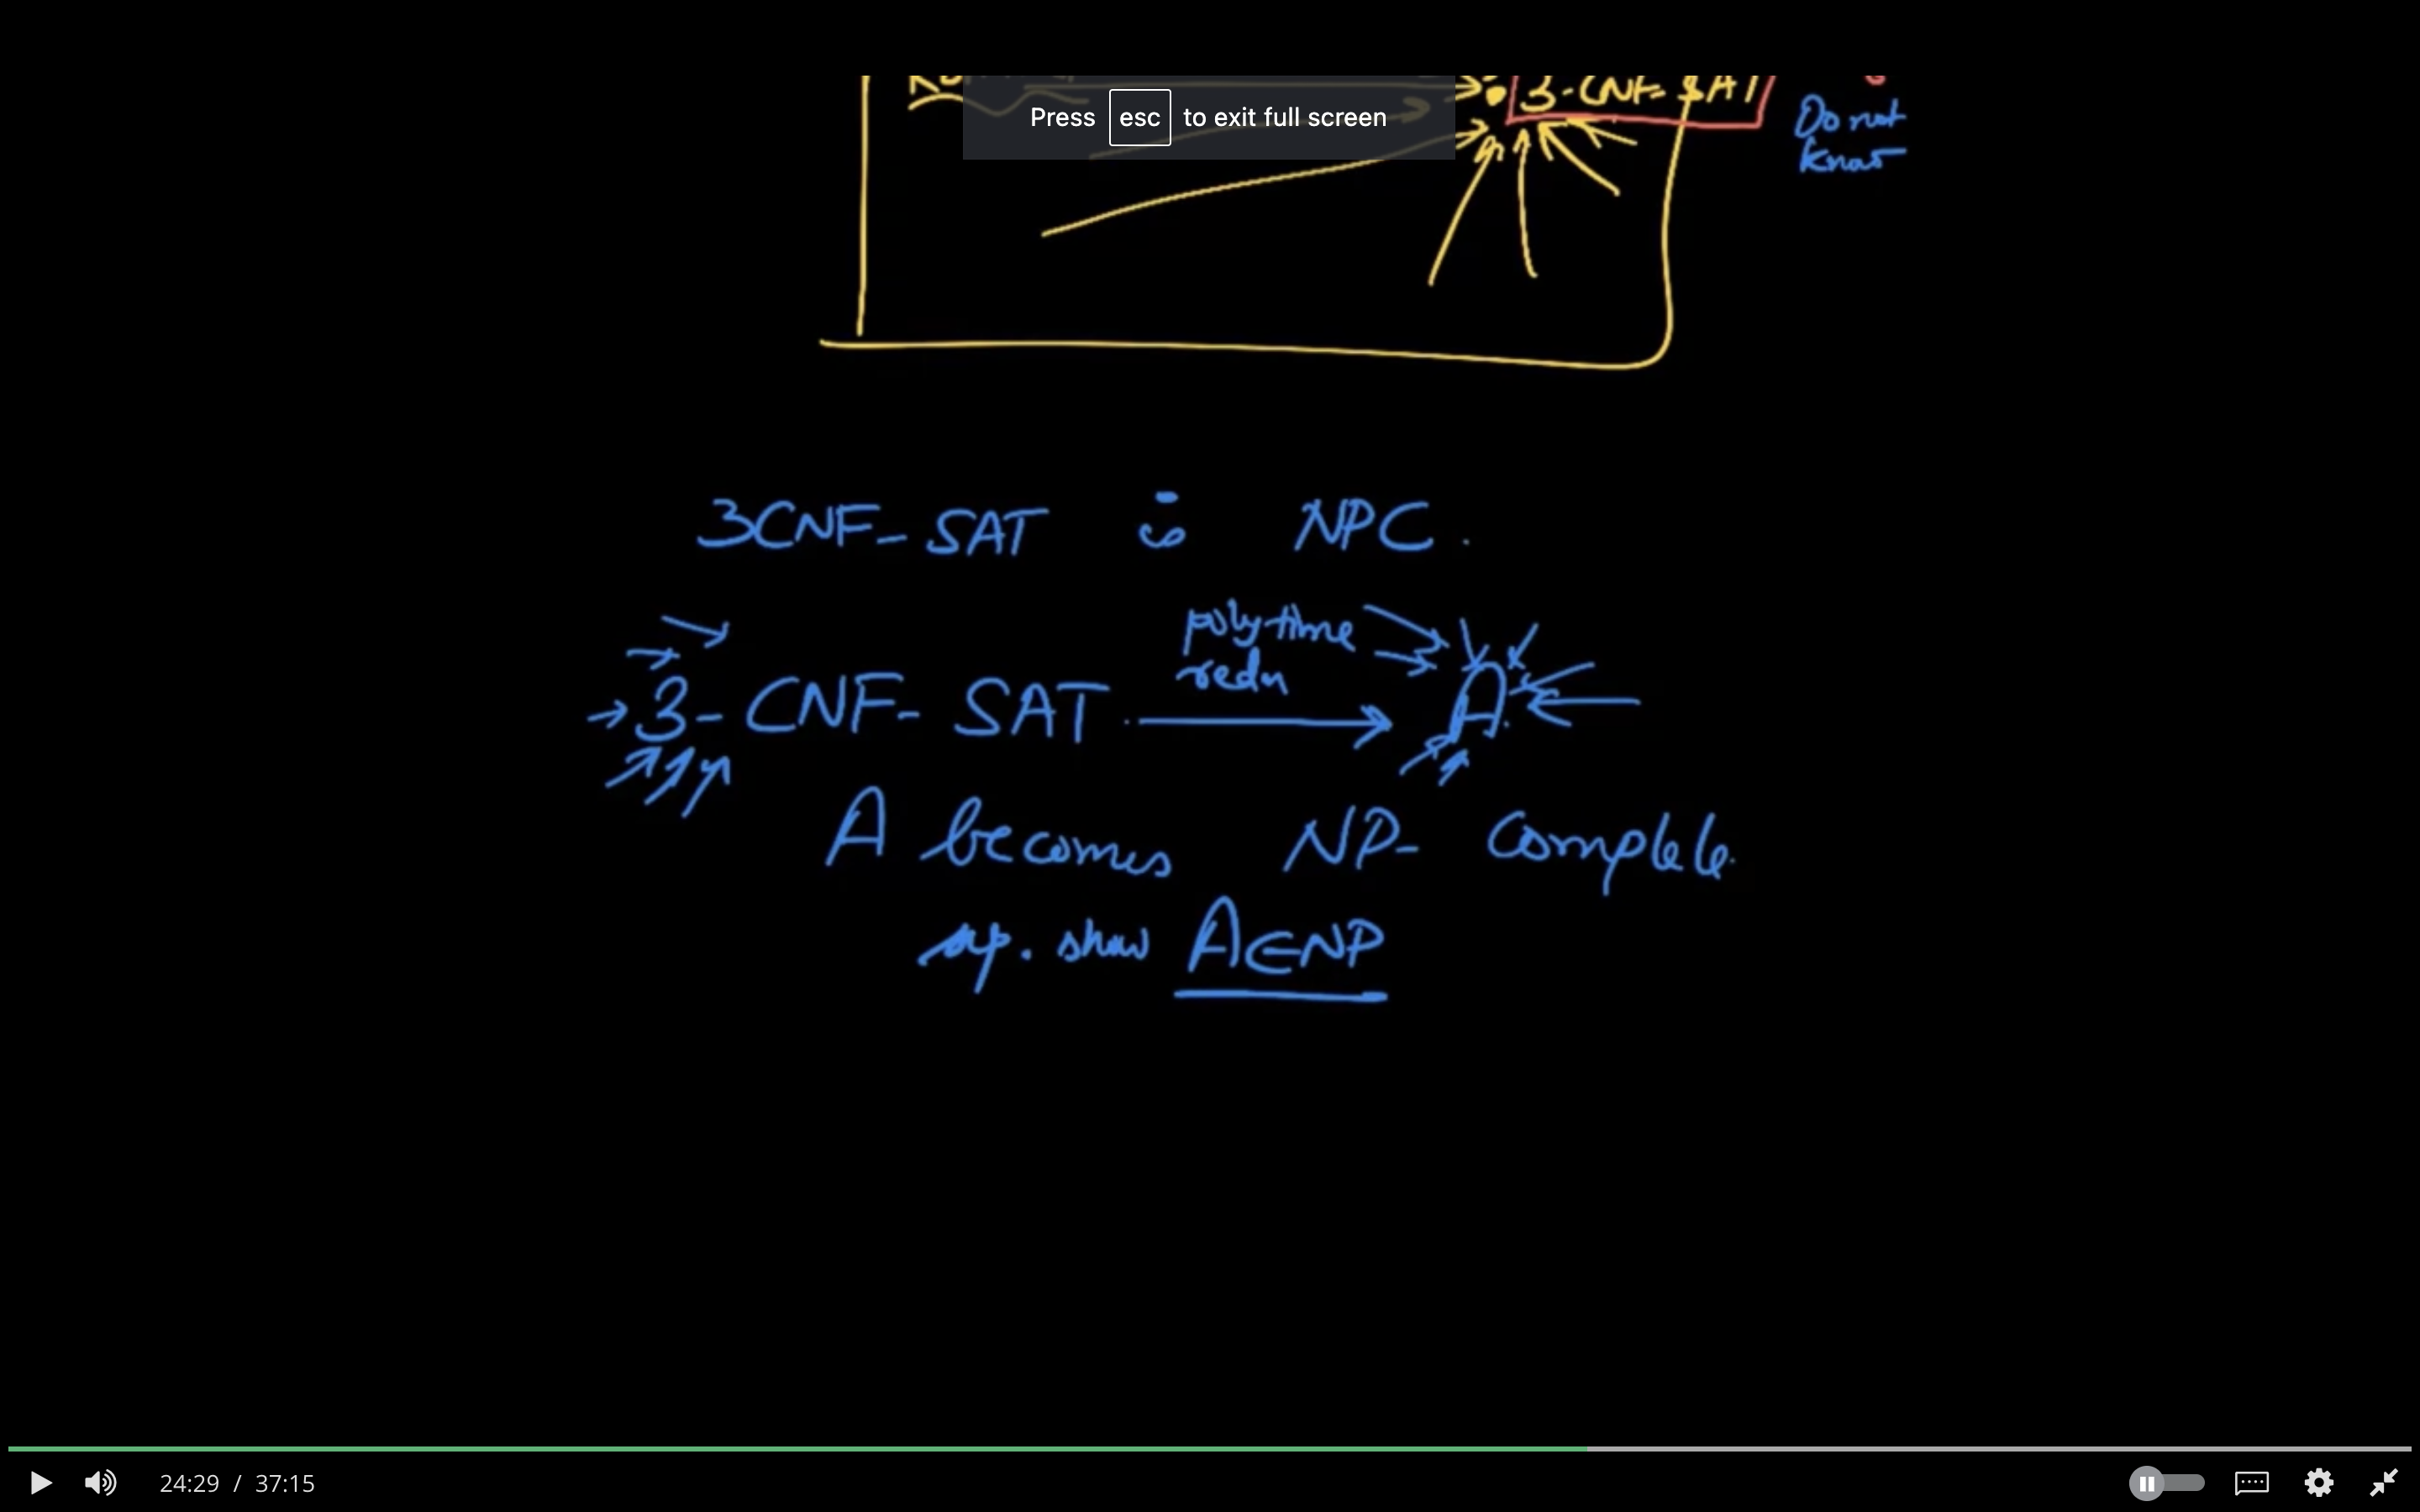 3-CNF-SAT
Press esc to exit full screen
Do not
know
3CNF-SAT is NPC.
poly time
redn
3-CNF-SAT A
A becomes NP-Complete.
show A∈NP
24:29 / 37:15